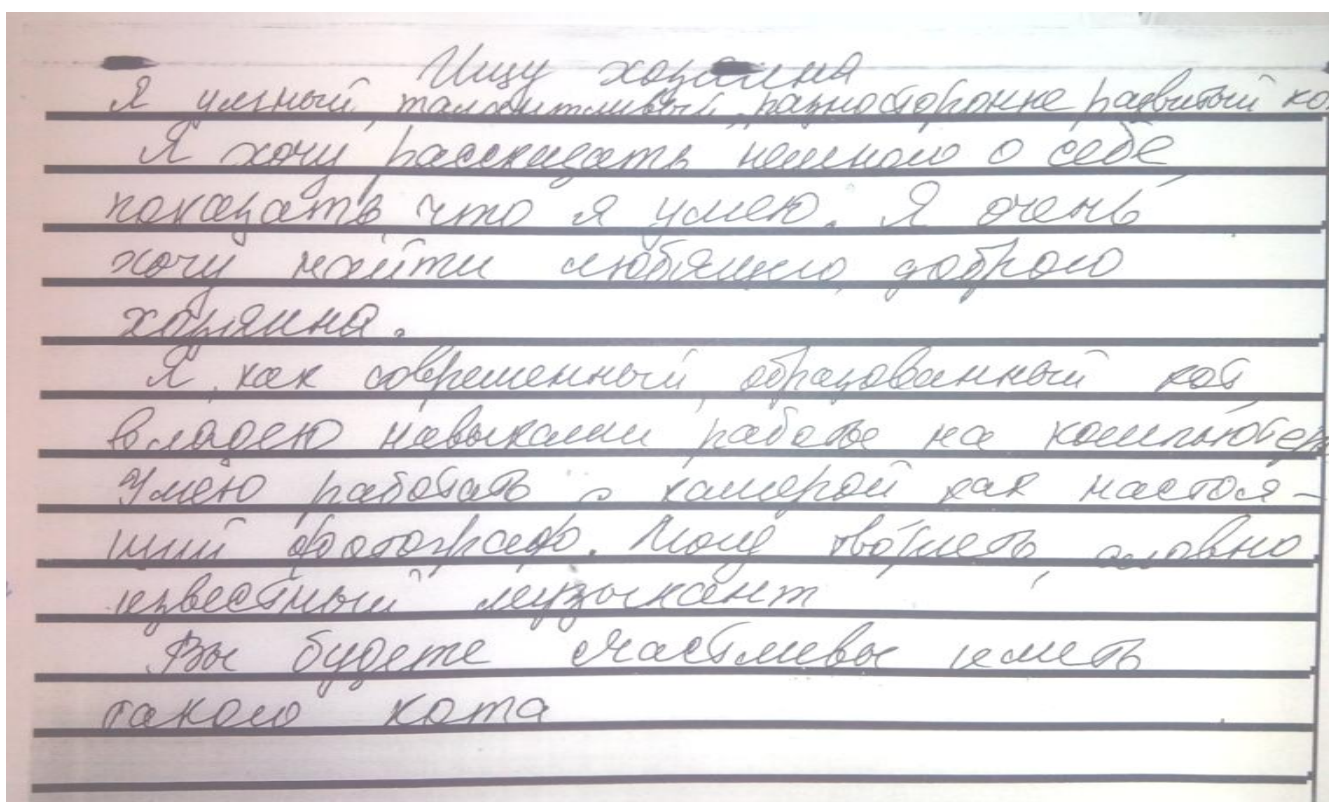 Ищу хозяина
Я умный, талантливый, разносторонне развитый ко
Я хочу рассказать немного о себе
показать, что я умею. Я очень
хочу найти любящего, доброго
хозяина.
Я, как современный, образованный кот
владею навыками работы на компьютер
Умею работать с камерой как настоя-
щий фотограф. Могу творить, словно
известный музыкант
Вы будете счастливы иметь
такого кота